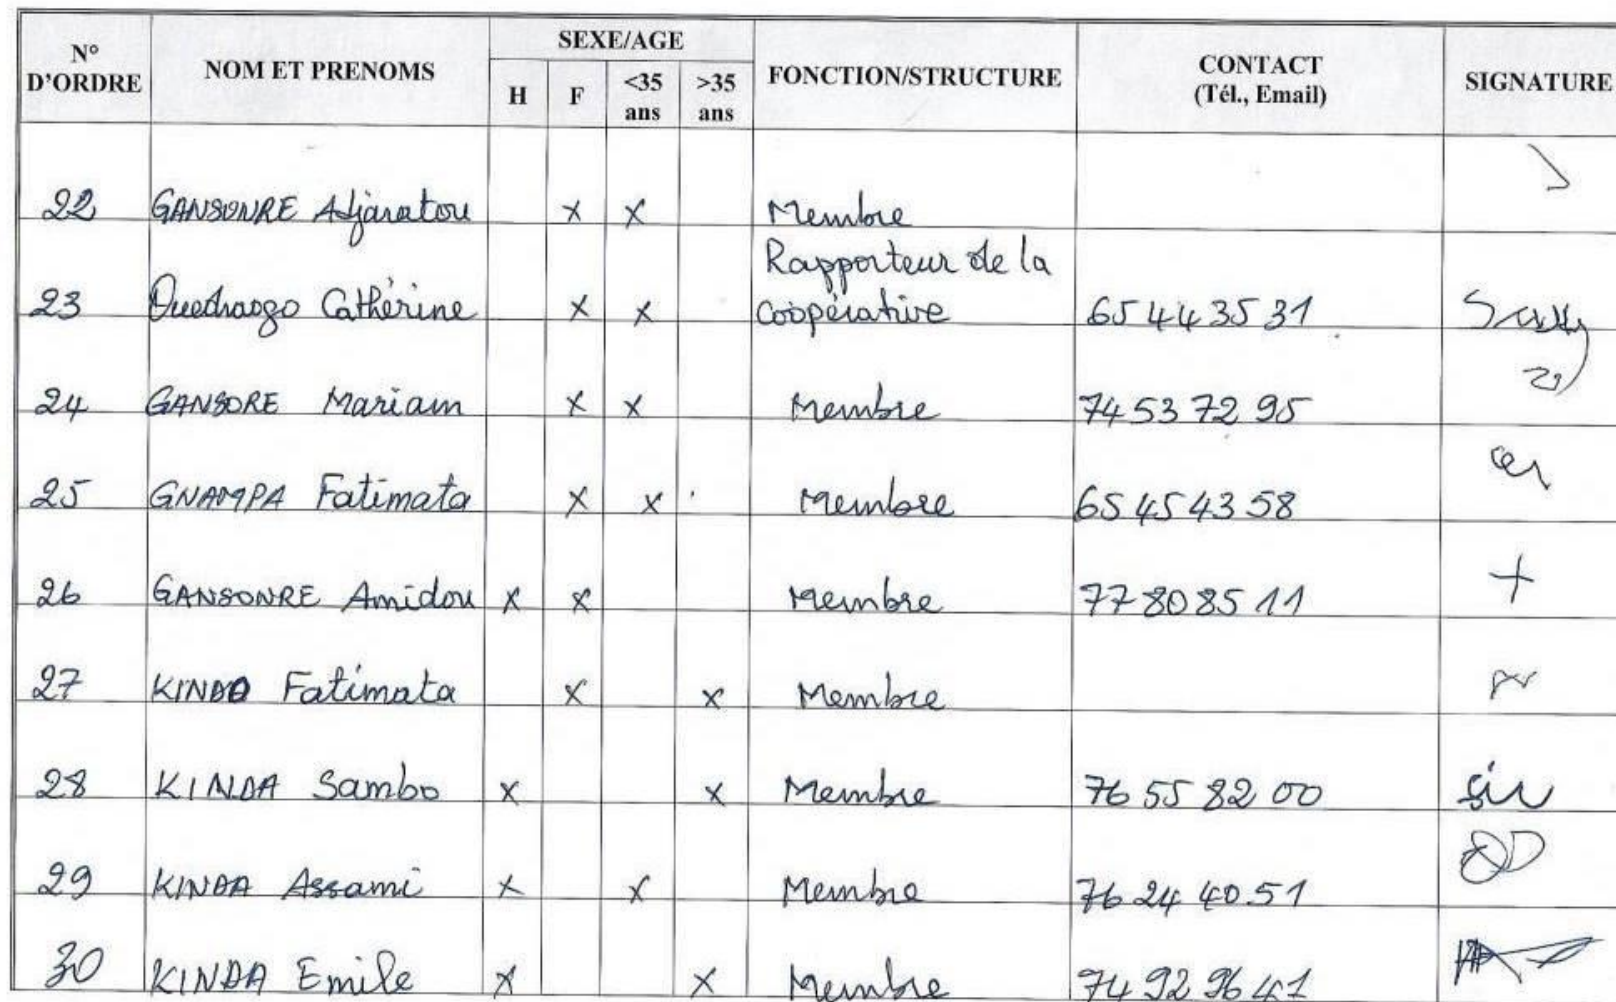 N° D'ORDRE NOM ET PRENOMS SEXE/AGE H F <35 ans >35 ans FONCTION/STRUCTURE CONTACT (Tél., Email) SIGNATURE
22 GANSONRE Adjaratou x x Membre
23 Ouedraogo Cathérine x x Rapporteur de la coopérative 65 44 35 31
24 GANSORE Mariam x x Membre 74 53 72 95
25 GNAMPA Fatimata x x Membre 65 45 43 58
26 GANSONRE Amidou x x Membre 77 80 85 11 +
27 KINDO Fatimata x x Membre
28 KINDA Sambo x x Membre 76 55 82 00
29 KINDA Assami x x Membre 76 24 40 51
30 KINDA Emile x x Membre 74 92 96 41